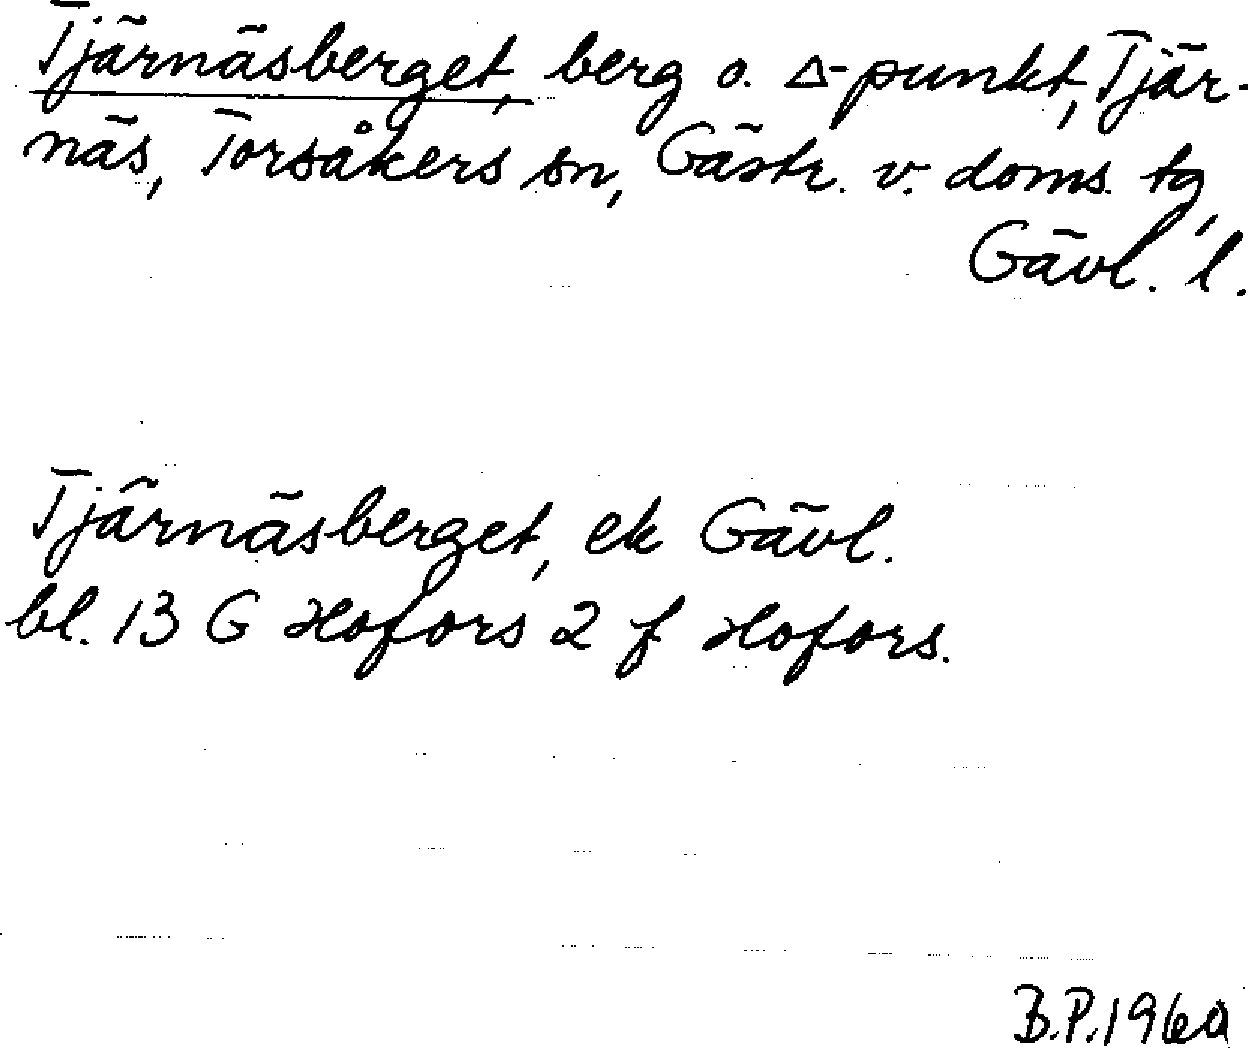 Tjärnäsberget, berg o. Δ-punkt, Tjär-
näs, Torsåkers sn, Gästr. v. doms. tg,
Gävl. l.
Tjärnäsberget, ek Gävl.
bl. 13 G Hofors 2 f Hofors.
B.P. 1960